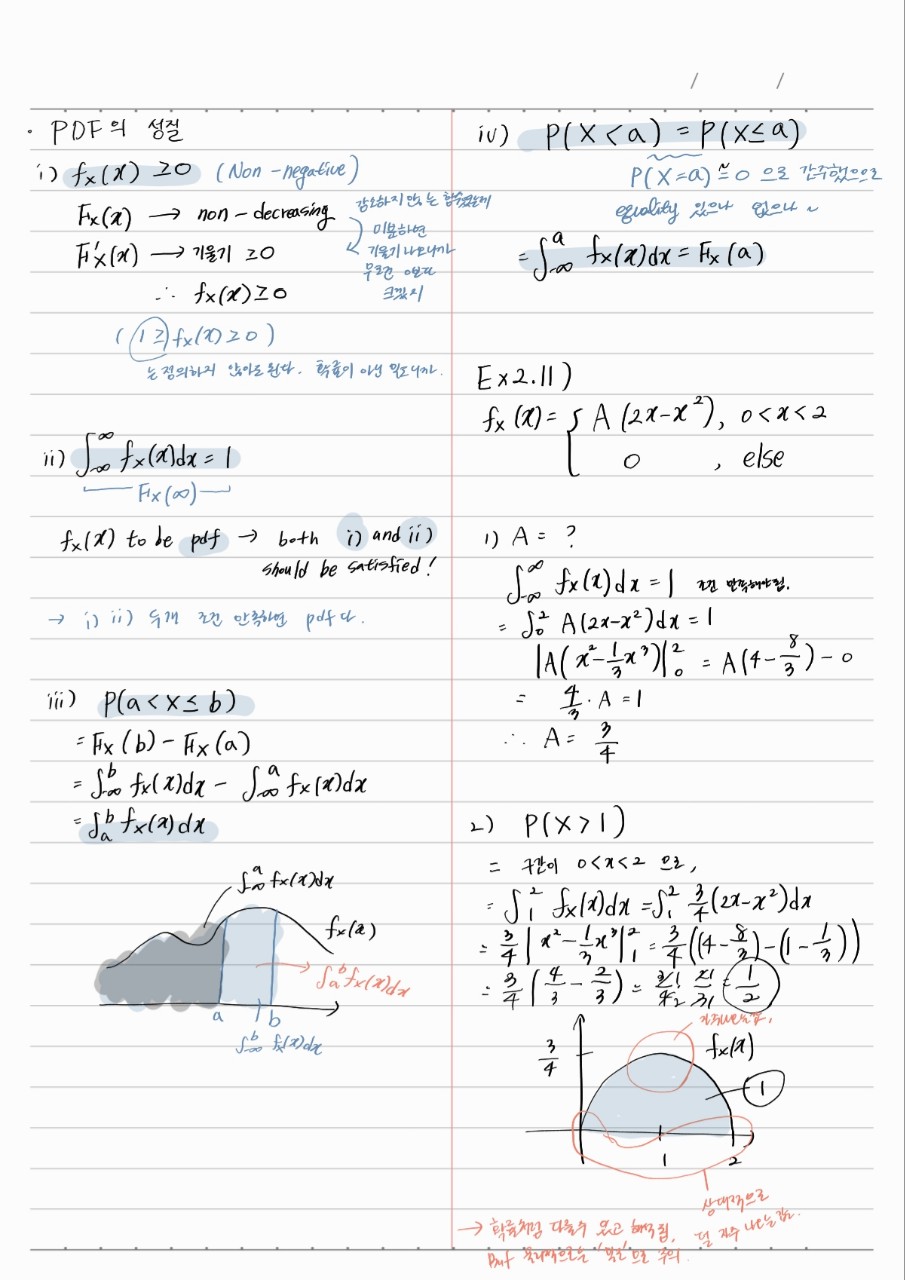 / /
· PDF의 성질
i) fx(x) ≥0 (Non-negative)
Fx(x) → non-decreasing
F'x(x) → 기울기 ≥0
∴ fx(x)≥0
감소하지 않는 함수였는데
미분하면
기울기 나오니까
무조건 0보다
크겠지
( 1≥ fx(x) ≥0 )
는 정의하지 않아도 된다. 확률이 아닌 밀도니까.
ii) ∫-∞^∞ fx(x)dx = 1
Fx(∞)
fx(x) to be pdf → both i) and ii)
should be satisfied!
→ i) ii) 두개 조건 만족하면 pdf다.
iii) P(a<x≤b)
= Fx(b) - Fx(a)
= ∫-∞^b fx(x)dx - ∫-∞^a fx(x)dx
= ∫a^b fx(x)dx
∫-∞^a fx(x)dx
fx(x)
∫a^b fx(x)dx
a b
∫-∞^b fx(x)dx
iv) P(X<a) = P(x≤a)
P(X=a)≃0 으로 간주했으므로
equality 있으나 없으나 ~
= ∫-∞^a fx(x)dx = Fx(a)
Ex2.11)
fx(x)= { A(2x-x²), 0<x<2
0 , else
1) A = ?
∫-∞^∞ fx(x)dx = 1 조건 만족해야됨.
= ∫0^2 A(2x-x²)dx = 1
|A(x²-1/3x³)|0^2 = A(4-8/3)-0
= 4/3·A = 1
∴ A = 3/4
2) P(X>1)
= 구간이 0<x<2 으로,
= ∫1^2 fx(x)dx = ∫1^2 3/4(2x-x²)dx
= 3/4|x²-1/3x³|1^2 = 3/4((4-8/3)-(1-1/3))
= 3/4(4/3-2/3) = 1/2
자주나오는값,
3/4
fx(x)
1
1 2
상대적으로
덜 자주 나오는값.
→ 확률처럼 다룰수 있고 해석됨,
But 물리적으로는 '밀도'으로 주의.